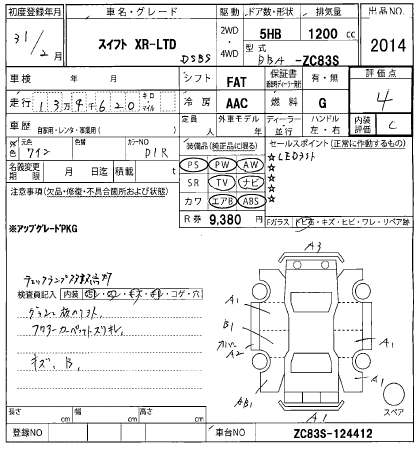 初度登録年月 車名・グレード 駆動 ドア数・形状 排気量 出品NO.
31/2月 スイフト XR-LTD DSBS 2WD・4WD 5HB 1200 cc 2014
型式 DBA -ZC83S
車検 年 月 シフト FAT 保証書 有・無 評価点 4
走行 134620 キロ・マイル 冷房 AAC 燃料 G
車歴 自家用・レンタ・事業用( ) 定員 人 外車モデル 年 ディーラー・並行 ハンドル 左・右 内装評価 C
外色 元色 ワイン 色替 カラーNO 装備品(純正品に限る) セールスポイント(正常に動作するもの)
名義変更期限 月 日迄 積載 t PS PW AW ☆LEDライト
SR TV ナビ ☆
注意事項(欠品・修復・不具合箇所および状態) カワ エアB ABS ☆
※アップグレードPKG R券 9,380 円 Fガラス トビ石・キズ・ヒビ・ワレ・リペア跡
検査員記入 内装 コゲ・穴
キズ、B、
A3
A1
B1
A2
A1
AB1
A1
A1
スペア
長さ cm 幅 cm 高さ cm
登録NO 車台NO ZC83S-124412